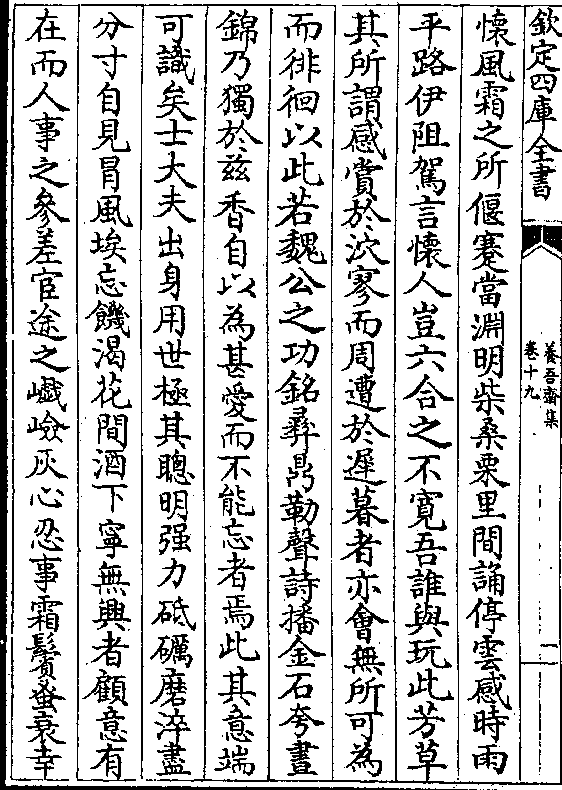 欽定四庫全書
養吾齋集
卷十九
懐風霜之所偃蹇當淵明柴桑栗里間誦停雲感時雨
平路伊阻駕言懐人豈六合之不寛吾誰與玩此芳草
其所謂感賞於泬寥而周遭於遲暮者亦會無所可為
而徘徊以此若魏公之功銘彛鼎勒聲詩播金石夸晝
錦乃獨於兹香自以為甚愛而不能忘者焉此其意端
可識矣士大夫出身用世極其聰明强力砥礪磨淬盡
分寸自見冒風埃忘饑渴花間酒下寧無興者顧意有
在而人事之參差宦途之巇嶮灰心忍事霜鬢蚤衰幸